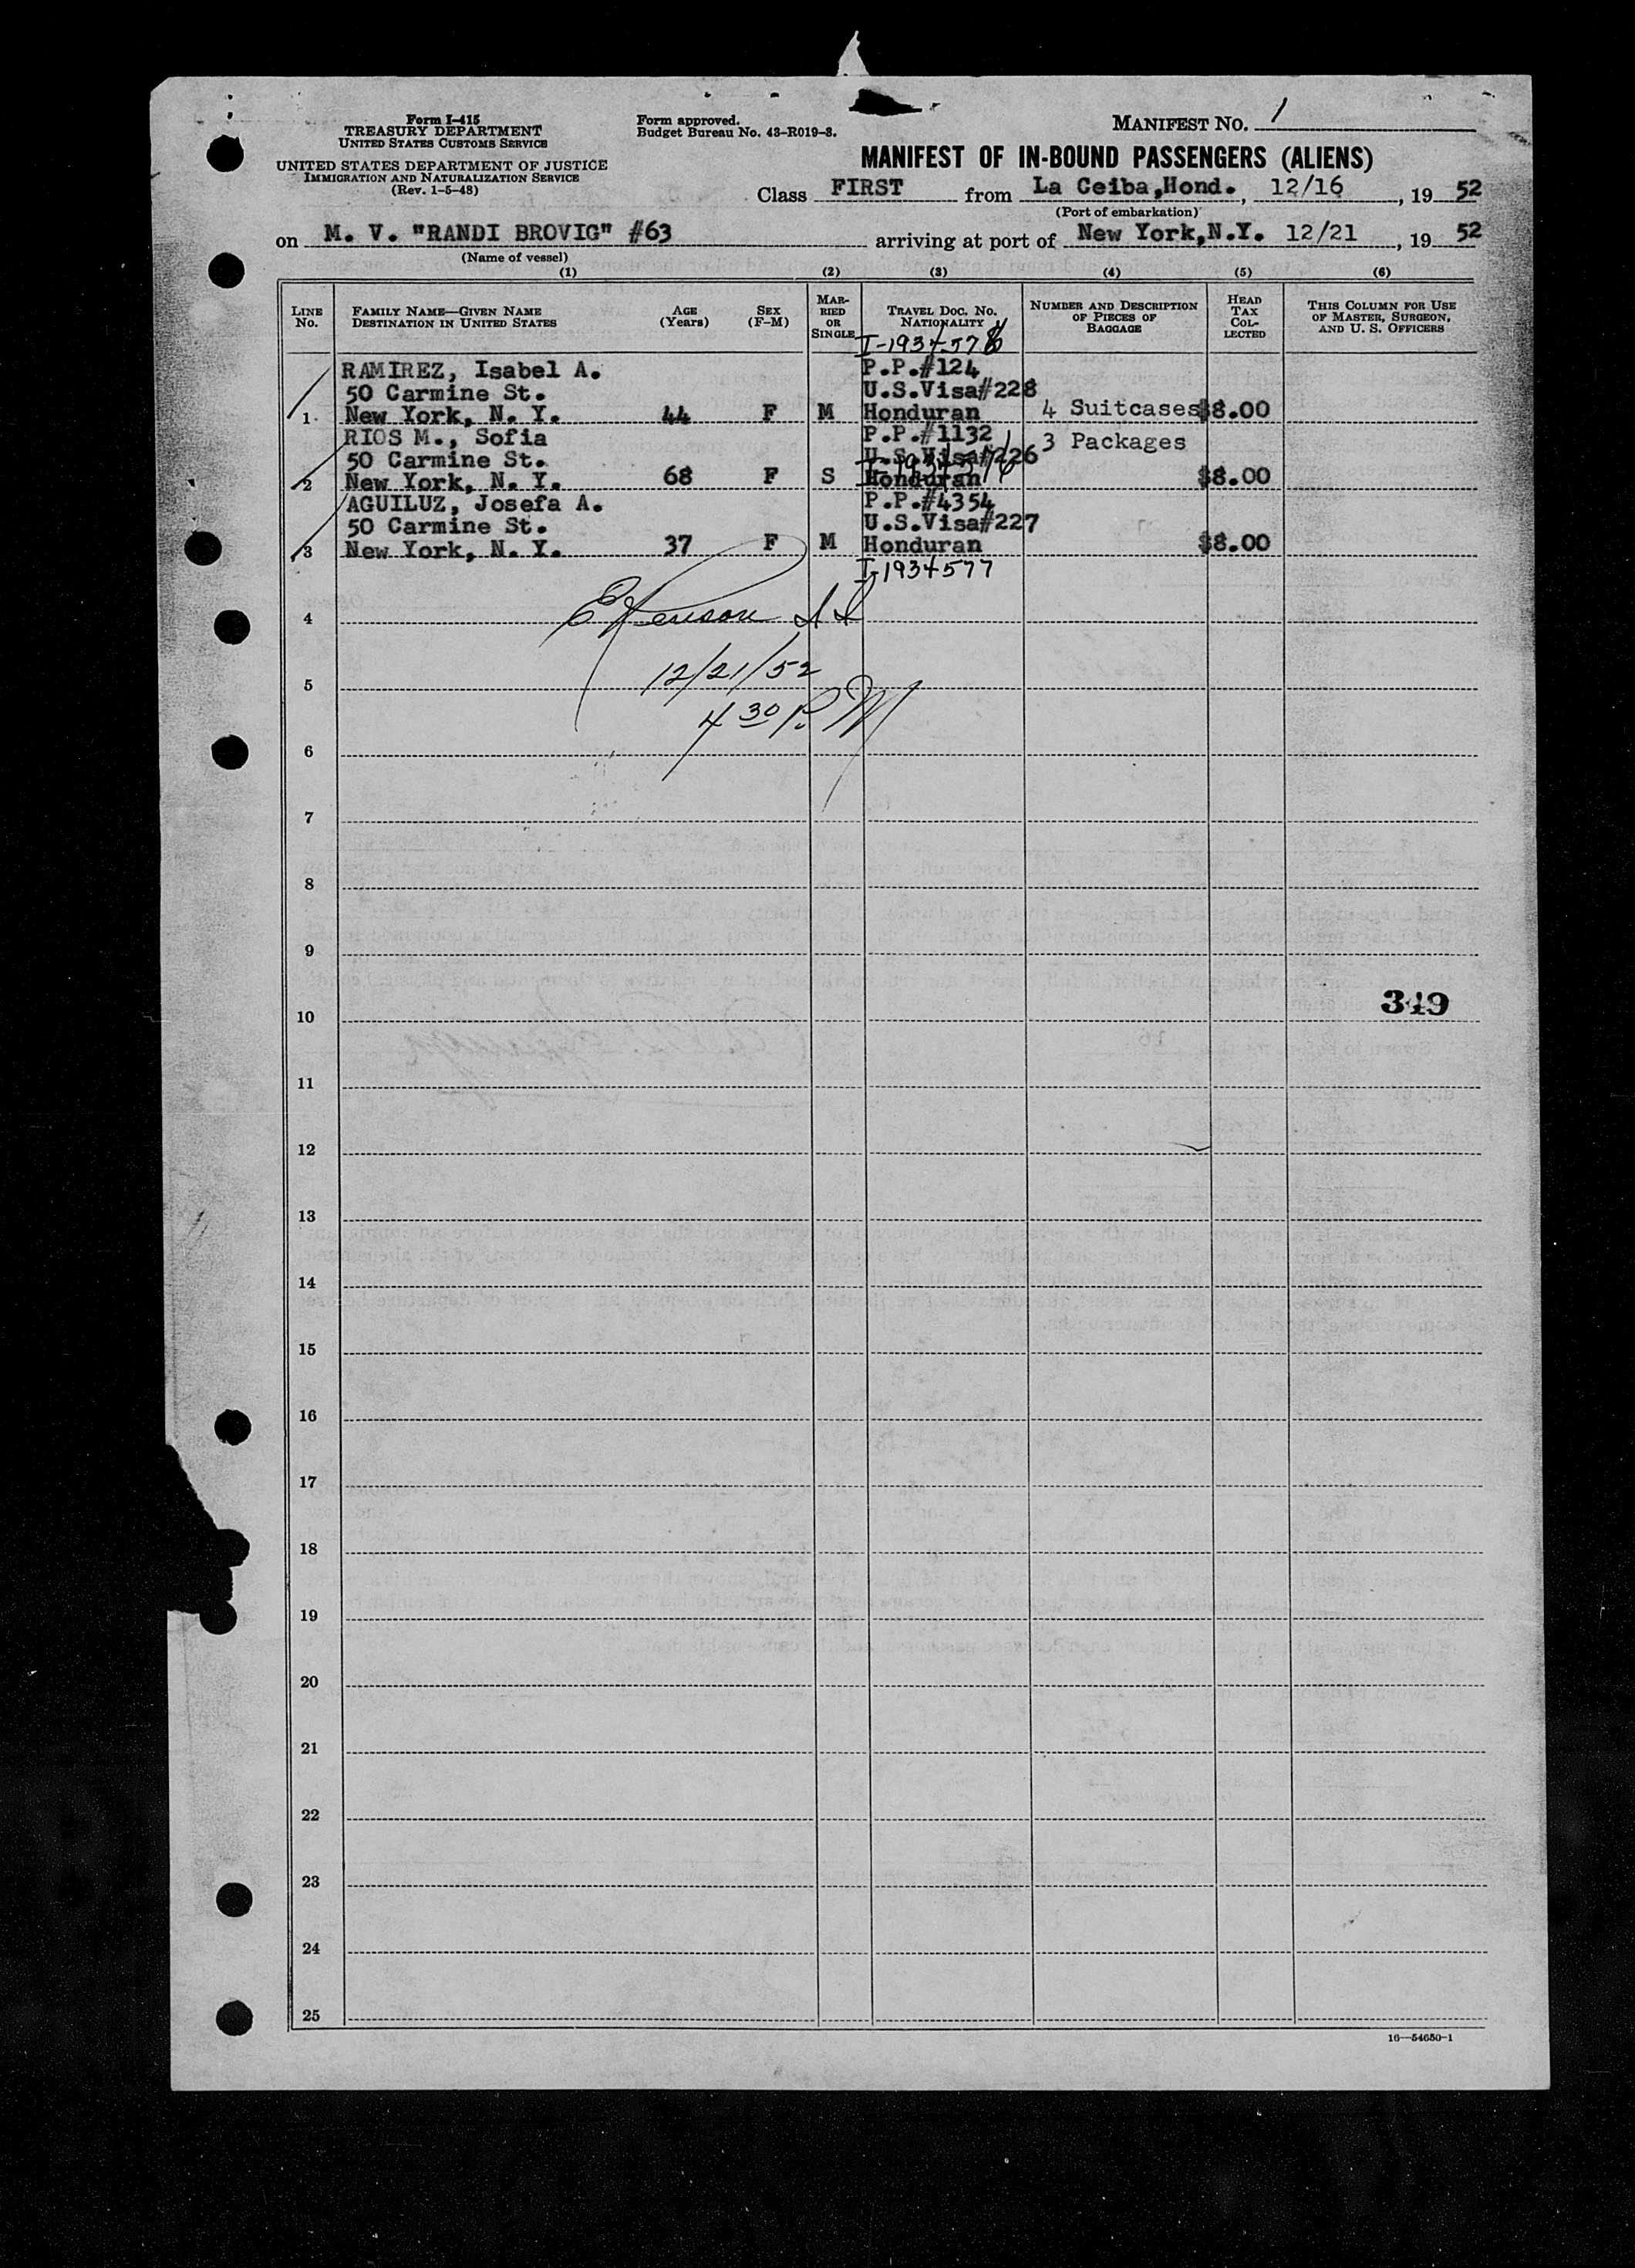 Form I-415
TREASURY DEPARTMENT
UNITED STATES CUSTOMS SERVICE
UNITED STATES DEPARTMENT OF JUSTICE
IMMIGRATION AND NATURALIZATION SERVICE
(Rev. 1-5-48)
Form approved.
Budget Bureau No. 43-R019-3.
MANIFEST NO. 1
MANIFEST OF IN-BOUND PASSENGERS (ALIENS)
Class FIRST from La Ceiba,Hond., 12/16, 19 52
(Port of embarkation)
on M. V. "RANDI BROVIG" #63 arriving at port of New York,N.Y. 12/21, 19 52
(Name of vessel)
(1) (2) (3) (4) (5) (6)
LINE No.
FAMILY NAME—GIVEN NAME
DESTINATION IN UNITED STATES
AGE (Years)
SEX (F-M)
MARRIED OR SINGLE
TRAVEL DOC. NO. NATIONALITY
NUMBER AND DESCRIPTION OF PIECES OF BAGGAGE
HEAD TAX COLLECTED
THIS COLUMN FOR USE OF MASTER, SURGEON, AND U. S. OFFICERS
RAMIREZ, Isabel A. P.P.#124
50 Carmine St. U.S.Visa#228
1 New York, N. Y. 44 F M Honduran 4 Suitcases $8.00
RIOS M., Sofia P.P.#1132 3 Packages
50 Carmine St. U.S.Visa#226
2 New York, N. Y. 68 F S Honduran $8.00
AGUILUZ, Josefa A. P.P.#4354
50 Carmine St. U.S.Visa#227
3 New York, N. Y. 37 F M Honduran $8.00
I-1934577
4
12/21/52
5
4 30 P. M
6
7
8
9
349
10
11
12
13
14
15
16
17
18
19
20
21
22
23
24
25
16—54650-1